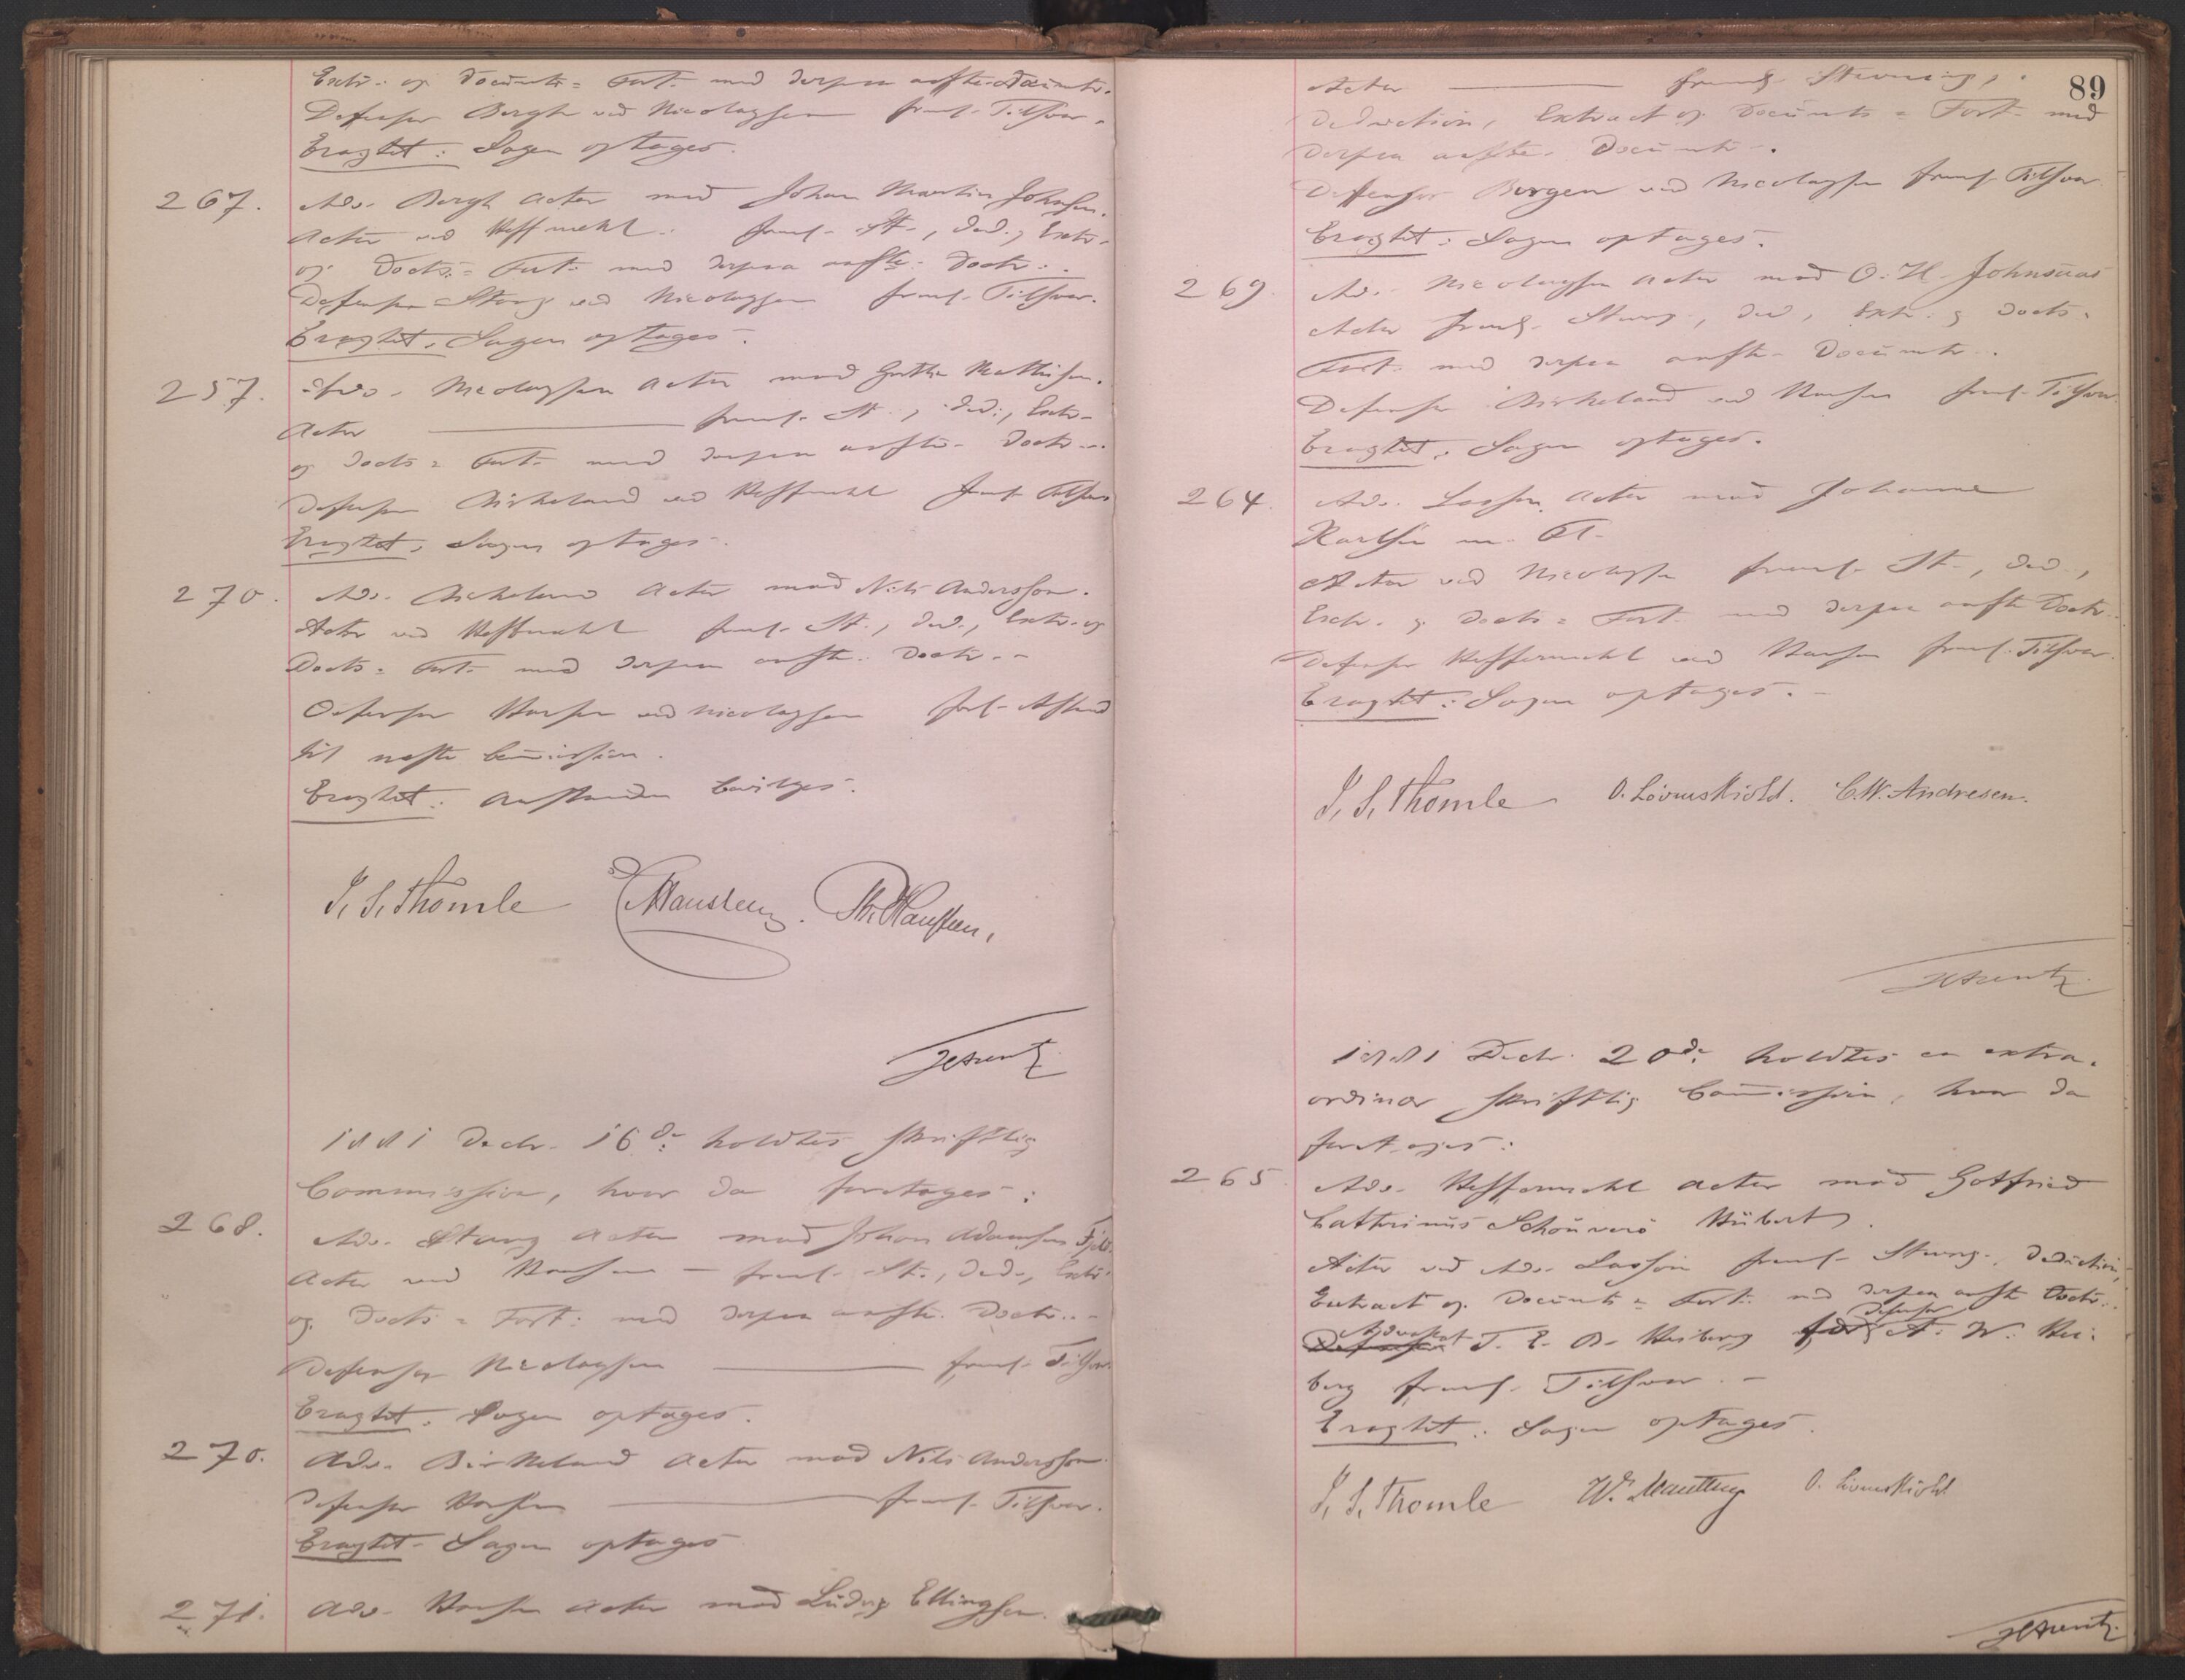 Extr. og Documts = Fort. med derpaa anførte Documtr.
Defensor Bergh ved Nicolaysen freml. Tilsvar.
Eragtet: Sagen optages.
267. Adv. Bergh Actor mod Johan Martin Johnsen.
Actor ved Heffermehl freml. St., Ded., Extr.
og Docts. = Fort. med derpaa anførte Doctr.
Defensor Stang ved Nicolaysen freml. Tilsvar.
Eragtet. Sagen optages.
257. Adv. Nicolaysen Actor mod Mathisen.
Actor freml. St., Ded., Extr.
og Docts = Fort. med derpaa anførte Doctr.
Defensor Birkeland ved Heffermehl freml. Tilsvar
Eragtet. Sagen optages.
270. Adv. Birkeland Actor mod Nils Andersson.
Actor ved Heffermehl freml. St., Ded., Extr. og
Docts = Fort. med derpaa anførte Doctr.
Defensor Hansen ved Nicolaysen forl. Afstand
til næste Commission.
Eragtet: Anstanden bevilges.
J. S. Thomle Th. Hansteen,
1881 Decbr. 16de holdtes skriftlig
Commission, hvor da foretages:
268. Adv. Stang Actor mod Johan Adamsen
Actor ved Hansen freml. St., Ded., Extr.
og Docts = Fort. med derpaa anførte Doctr.
Defensor Nicolaysen freml. Tilsvar.
Eragtet. Sagen optages.
270. Adv. Birkeland Actor mod Nils Andersson.
Defensor Hansen freml. Tilsvar.
Eragtet. Sagen optages
271. Adv. Hansen Actor mod Ludvig Ellingsen.
89
Actor freml. Stevning,
Deduction, Extract og Documts = Fort. med
derpaa anførte Documtr.
Defensor Bergen ved Nicolaysen freml. Tilsvar.
Eragtet: Sagen optages.
269. Adv. Nicolaysen Actor mod O. H. Johnsaas
Actor freml. Stevng., Ded., Extr. og Docts =
Fort. med derpaa anførte Documtr.
Defensor Birkeland ved Hansen freml. Tilsvar.
Eragtet. Sagen optages.
264. Adv. Lasson Actor mod Johanne
Karlsen m. Fl.
Actor ved Nicolaysen freml. St., Ded.,
Extr. og Docts = Fort. med derpaa anførte Doctr.
Defensor Heffermehl ved Hansen freml. Tilsvar.
Eragtet: Sagen optages.
J. S. Thomle O. Løvenskiold. C. W. Andresen.
1881 Decbr. 20de holdtes en extra-
ordinær skriftlig Commission, hvor da
foretages:
265 Adv. Heffermehl Actor mod Gotfried
Hübert.
Actor ved Adv. Lasson freml. Stevng., Deduction,
Extract og Documts = Fort. med derpaa anførte Doctr.
Advokat T. E. B. Heiberg for Defensor A. W. Hei-
berg freml. Tilsvar.
Eragtet: Sagen optages.
J. S. Thomle O. Løvenskiold